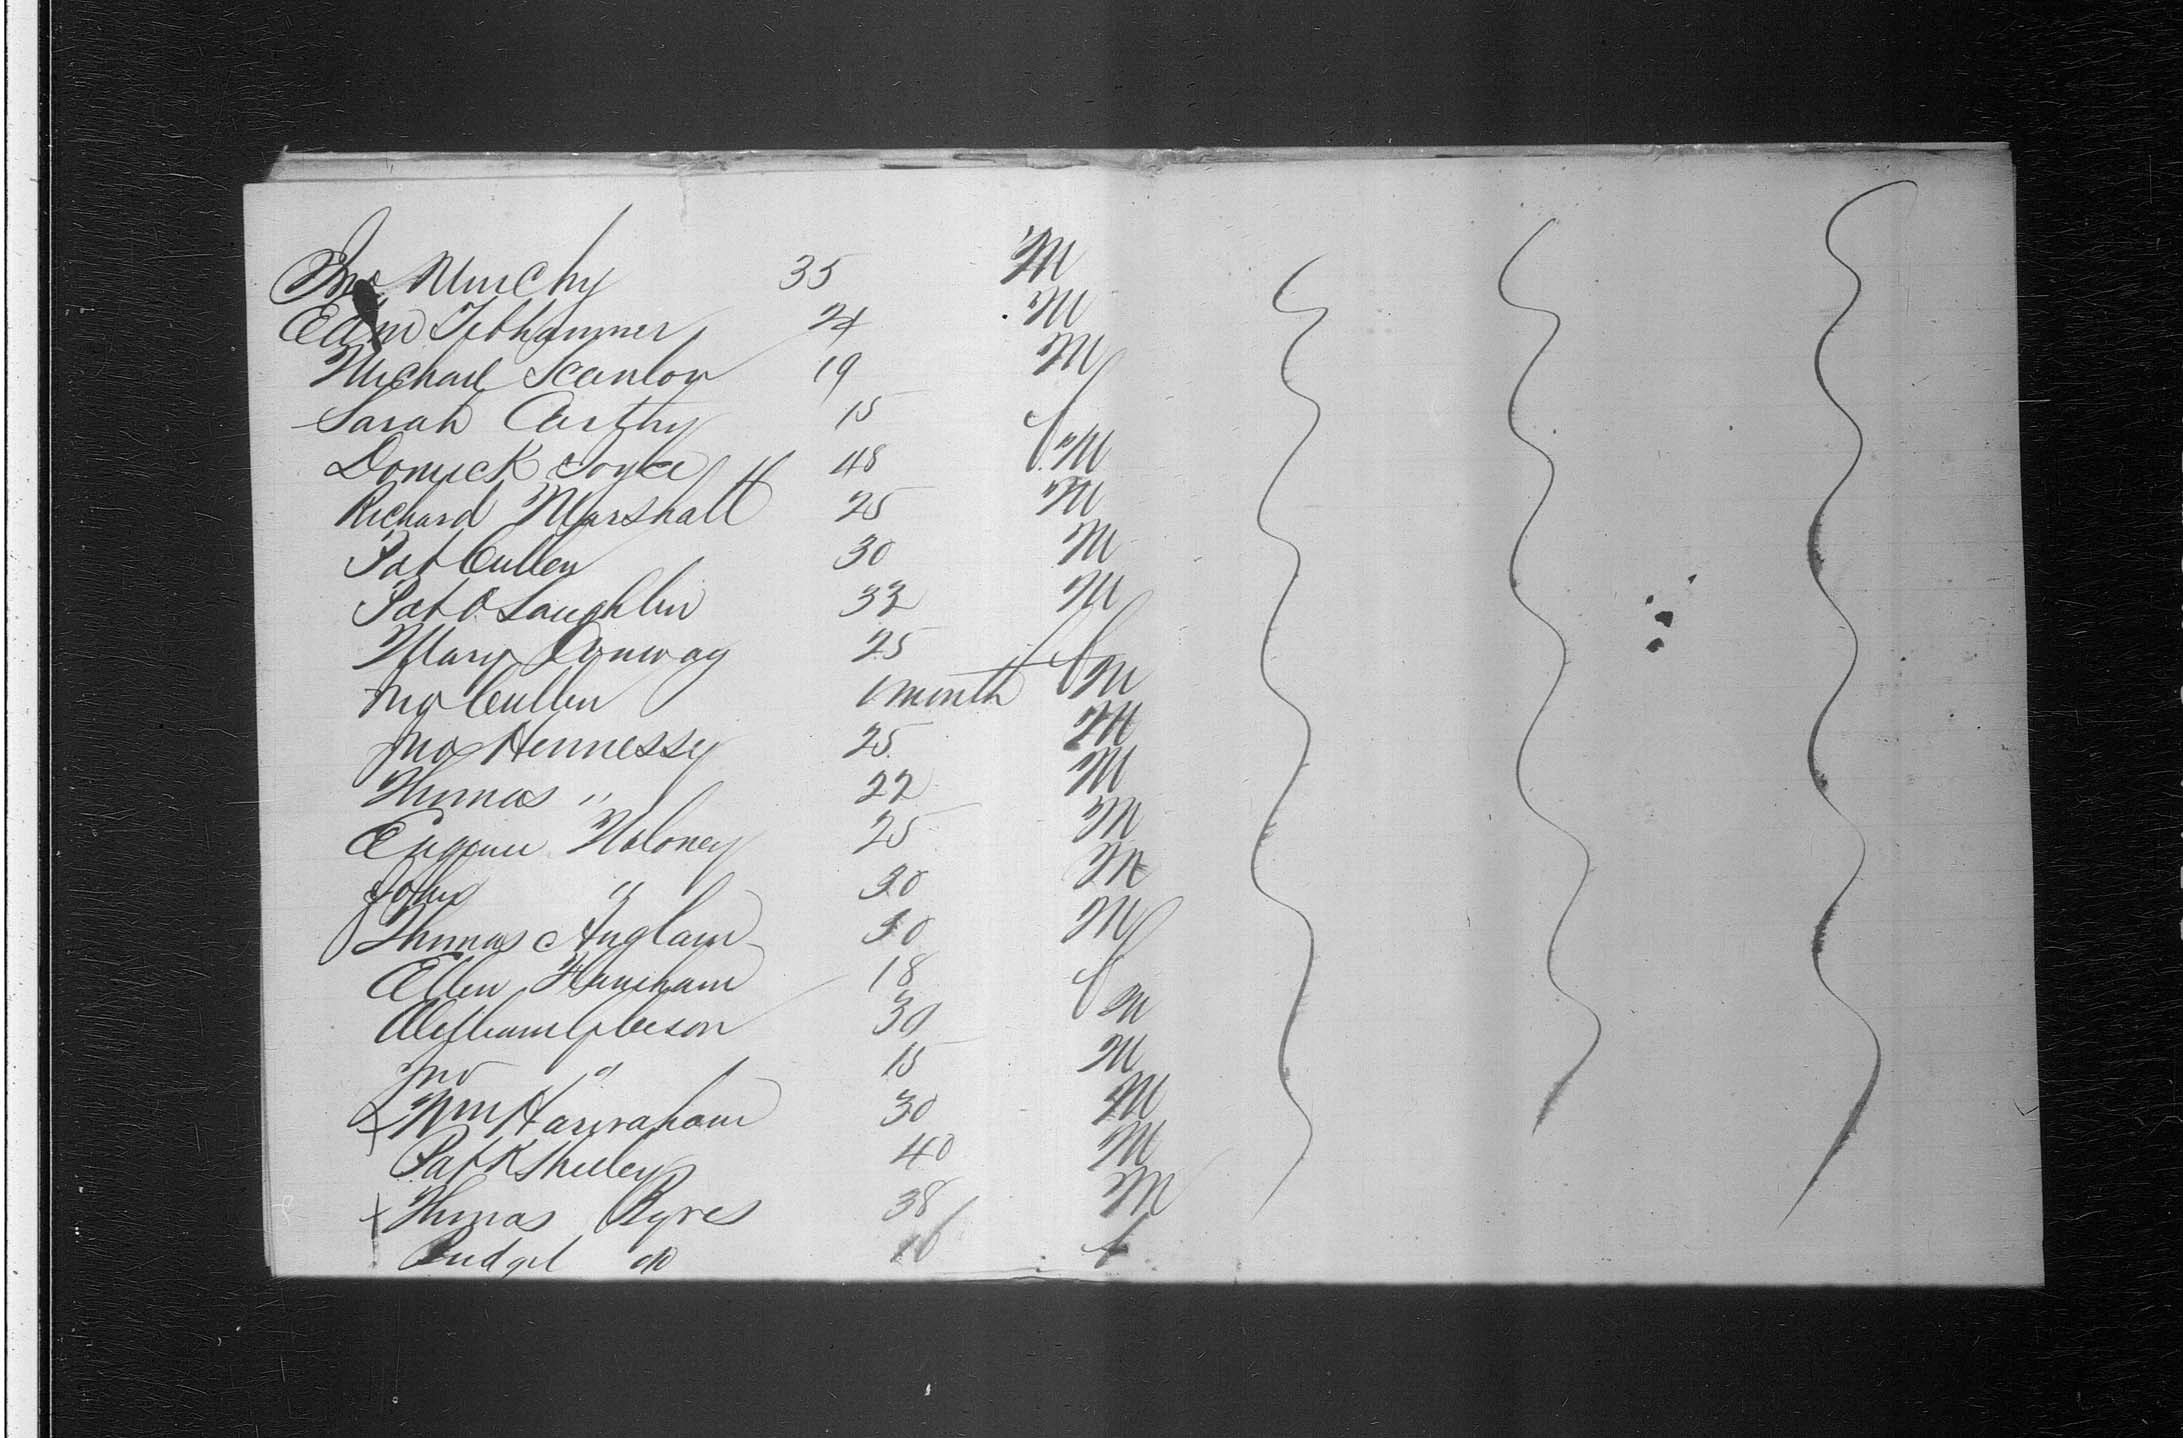 Jno Murchy 35 M
Edm 24 M
Michael Scanlon 19 M
Sarah Carthy 15 f
Domick Joyce 48 M
Richard Marshall 25 M
Pat Cullen 30 M
Pat O Laughlin 32 M
Mary Conway 25 f
Jno Cullen 1 month M
Jno Hennessy 25 M
Thomas " 22 M
Eugene Moloney 25 M
John " 30 M
Thomas Anglam 30 M
Ellen 18 f
William Gleeson 30 M
Jno " 15 M
x Wm Hanrahan 30 M
Patk Sheeley 40 M
x Thomas Ryves 38 M
Bridget do 16 f